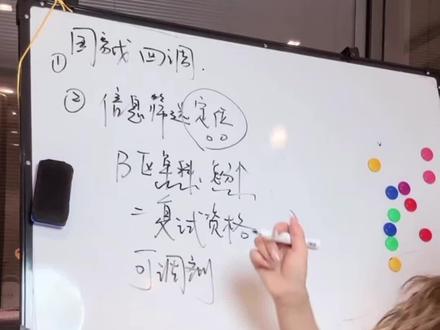 ① 国家线 回调.
② 信息筛选 定位
B区 单科、总分
= 复试资格。
可调剂